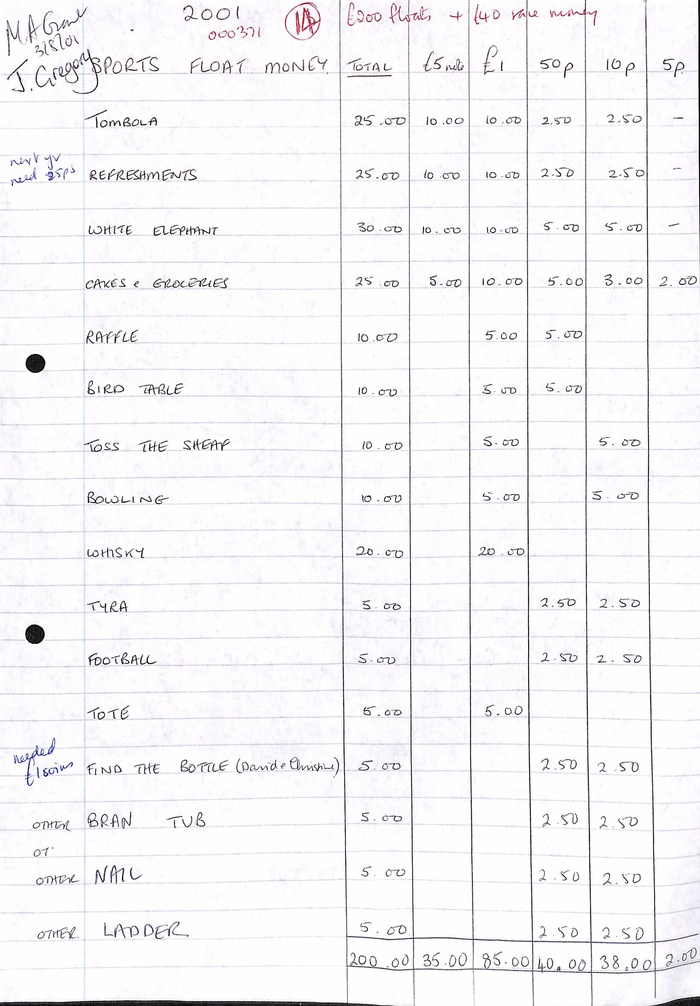 M A Grant 2001 14 £200 floats + £40 race money
3/8/01 000371
J. Gregory SPORTS FLOAT MONEY TOTAL £5 note £1 50p 10p 5p
TOMBOLA 25.00 10.00 10.00 2.50 2.50 –
next yr
need 25ps REFRESHMENTS 25.00 10.00 10.00 2.50 2.50 –
WHITE ELEPHANT 30.00 10.00 10.00 5.00 5.00 –
CAKES & GROCERIES 25.00 5.00 10.00 5.00 3.00 2.00
RAFFLE 10.00 5.00 5.00
BIRD TABLE 10.00 5.00 5.00
TOSS THE SHEAF 10.00 5.00 5.00
BOWLING 10.00 5.00 5.00
WHISKY 20.00 20.00
TYRA 5.00 2.50 2.50
FOOTBALL 5.00 2.50 2.50
TOTE 5.00 5.00
needed
£1 coins FIND THE BOTTLE (David & Christine) 5.00 2.50 2.50
OTHER BRAN TUB 5.00 2.50 2.50
OT
OTHER NAIL 5.00 2.50 2.50
OTHER LADDER 5.00 2.50 2.50
200.00 35.00 85.00 40.00 38.00 2.00